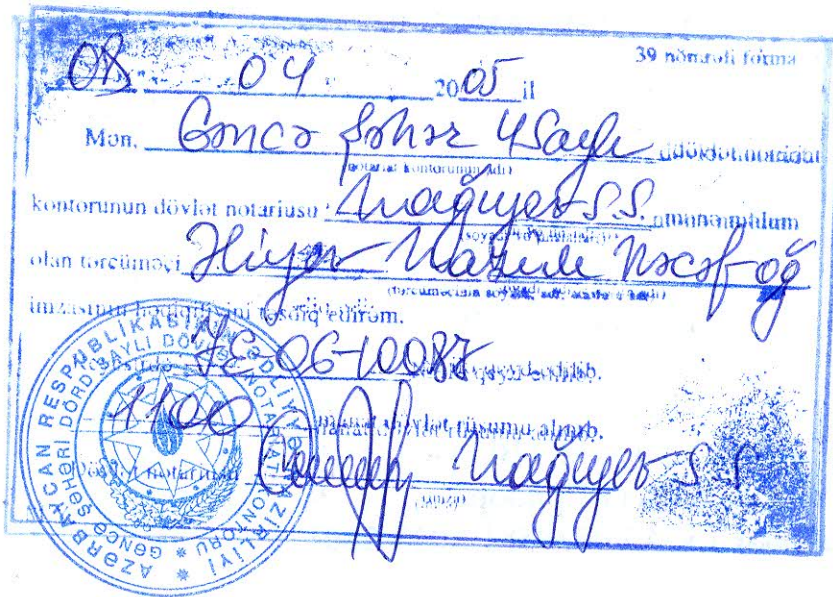 39 nömrəli forma
08 04 2005 il
Mən, Gəncə şəhər 4 Saylı dövlət notariat
(notariat kontorunun adı)
kontorunun dövlət notariusu Nağıyev S.S. mənə məlum
olan tərcüməçi Nazim Nəcəf oğ
imzasının həqiqiliyini təsdiq edirəm.
06-10087
1100 manat dövlət rüsumu alınıb.
Dövlət notariusu Nağıyev S.S
(imza)
AZƏRBAYCAN RESPUBLİKASI ƏDLİYYƏ NAZİRLİYİ
GƏNCƏ ŞƏHƏRİ DÖRD SAYLI DÖVLƏT NOTARİAT KONTORU